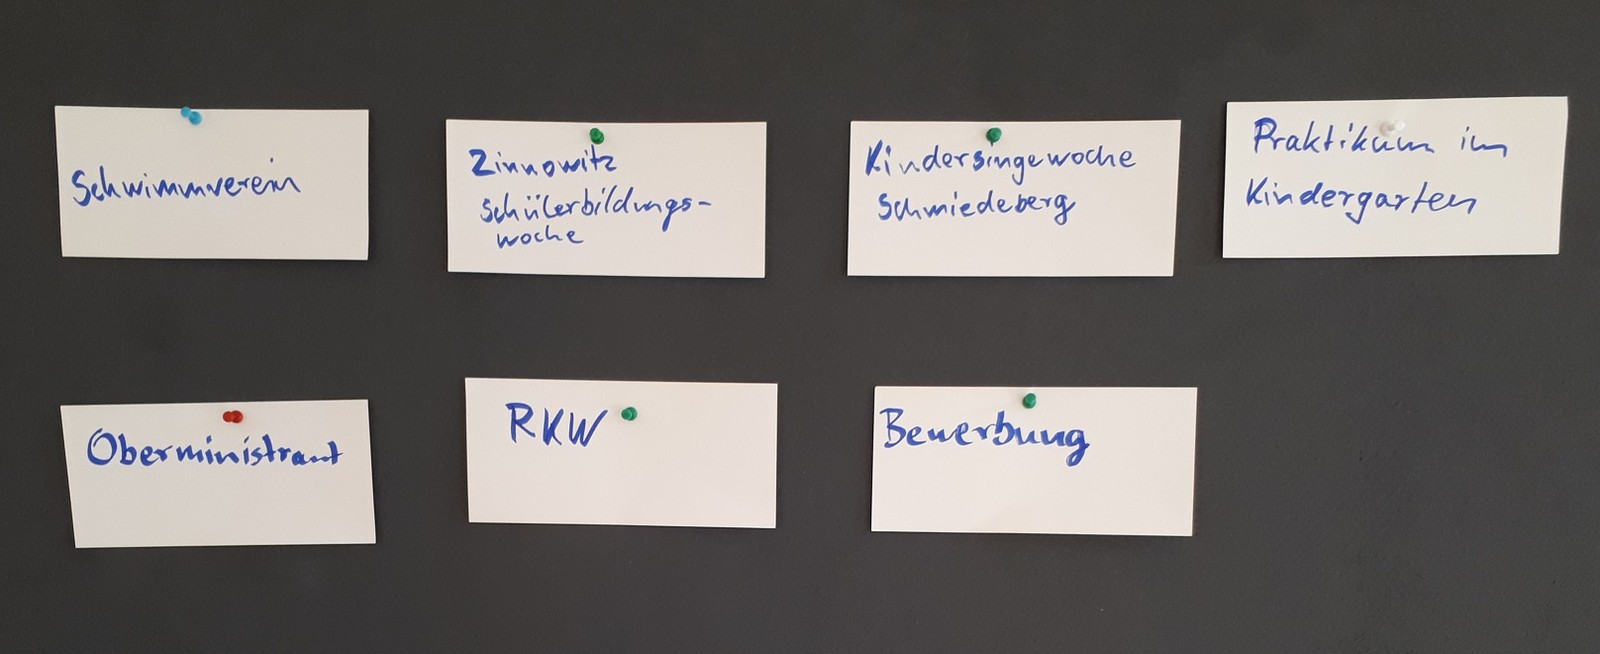 Schwimmverein
Zinnowitz
Schülerbildungs-
woche
Kindersingewoche
Schmiedeberg
Praktikum im
Kindergarten
Oberministrant
RKW
Bewerbung